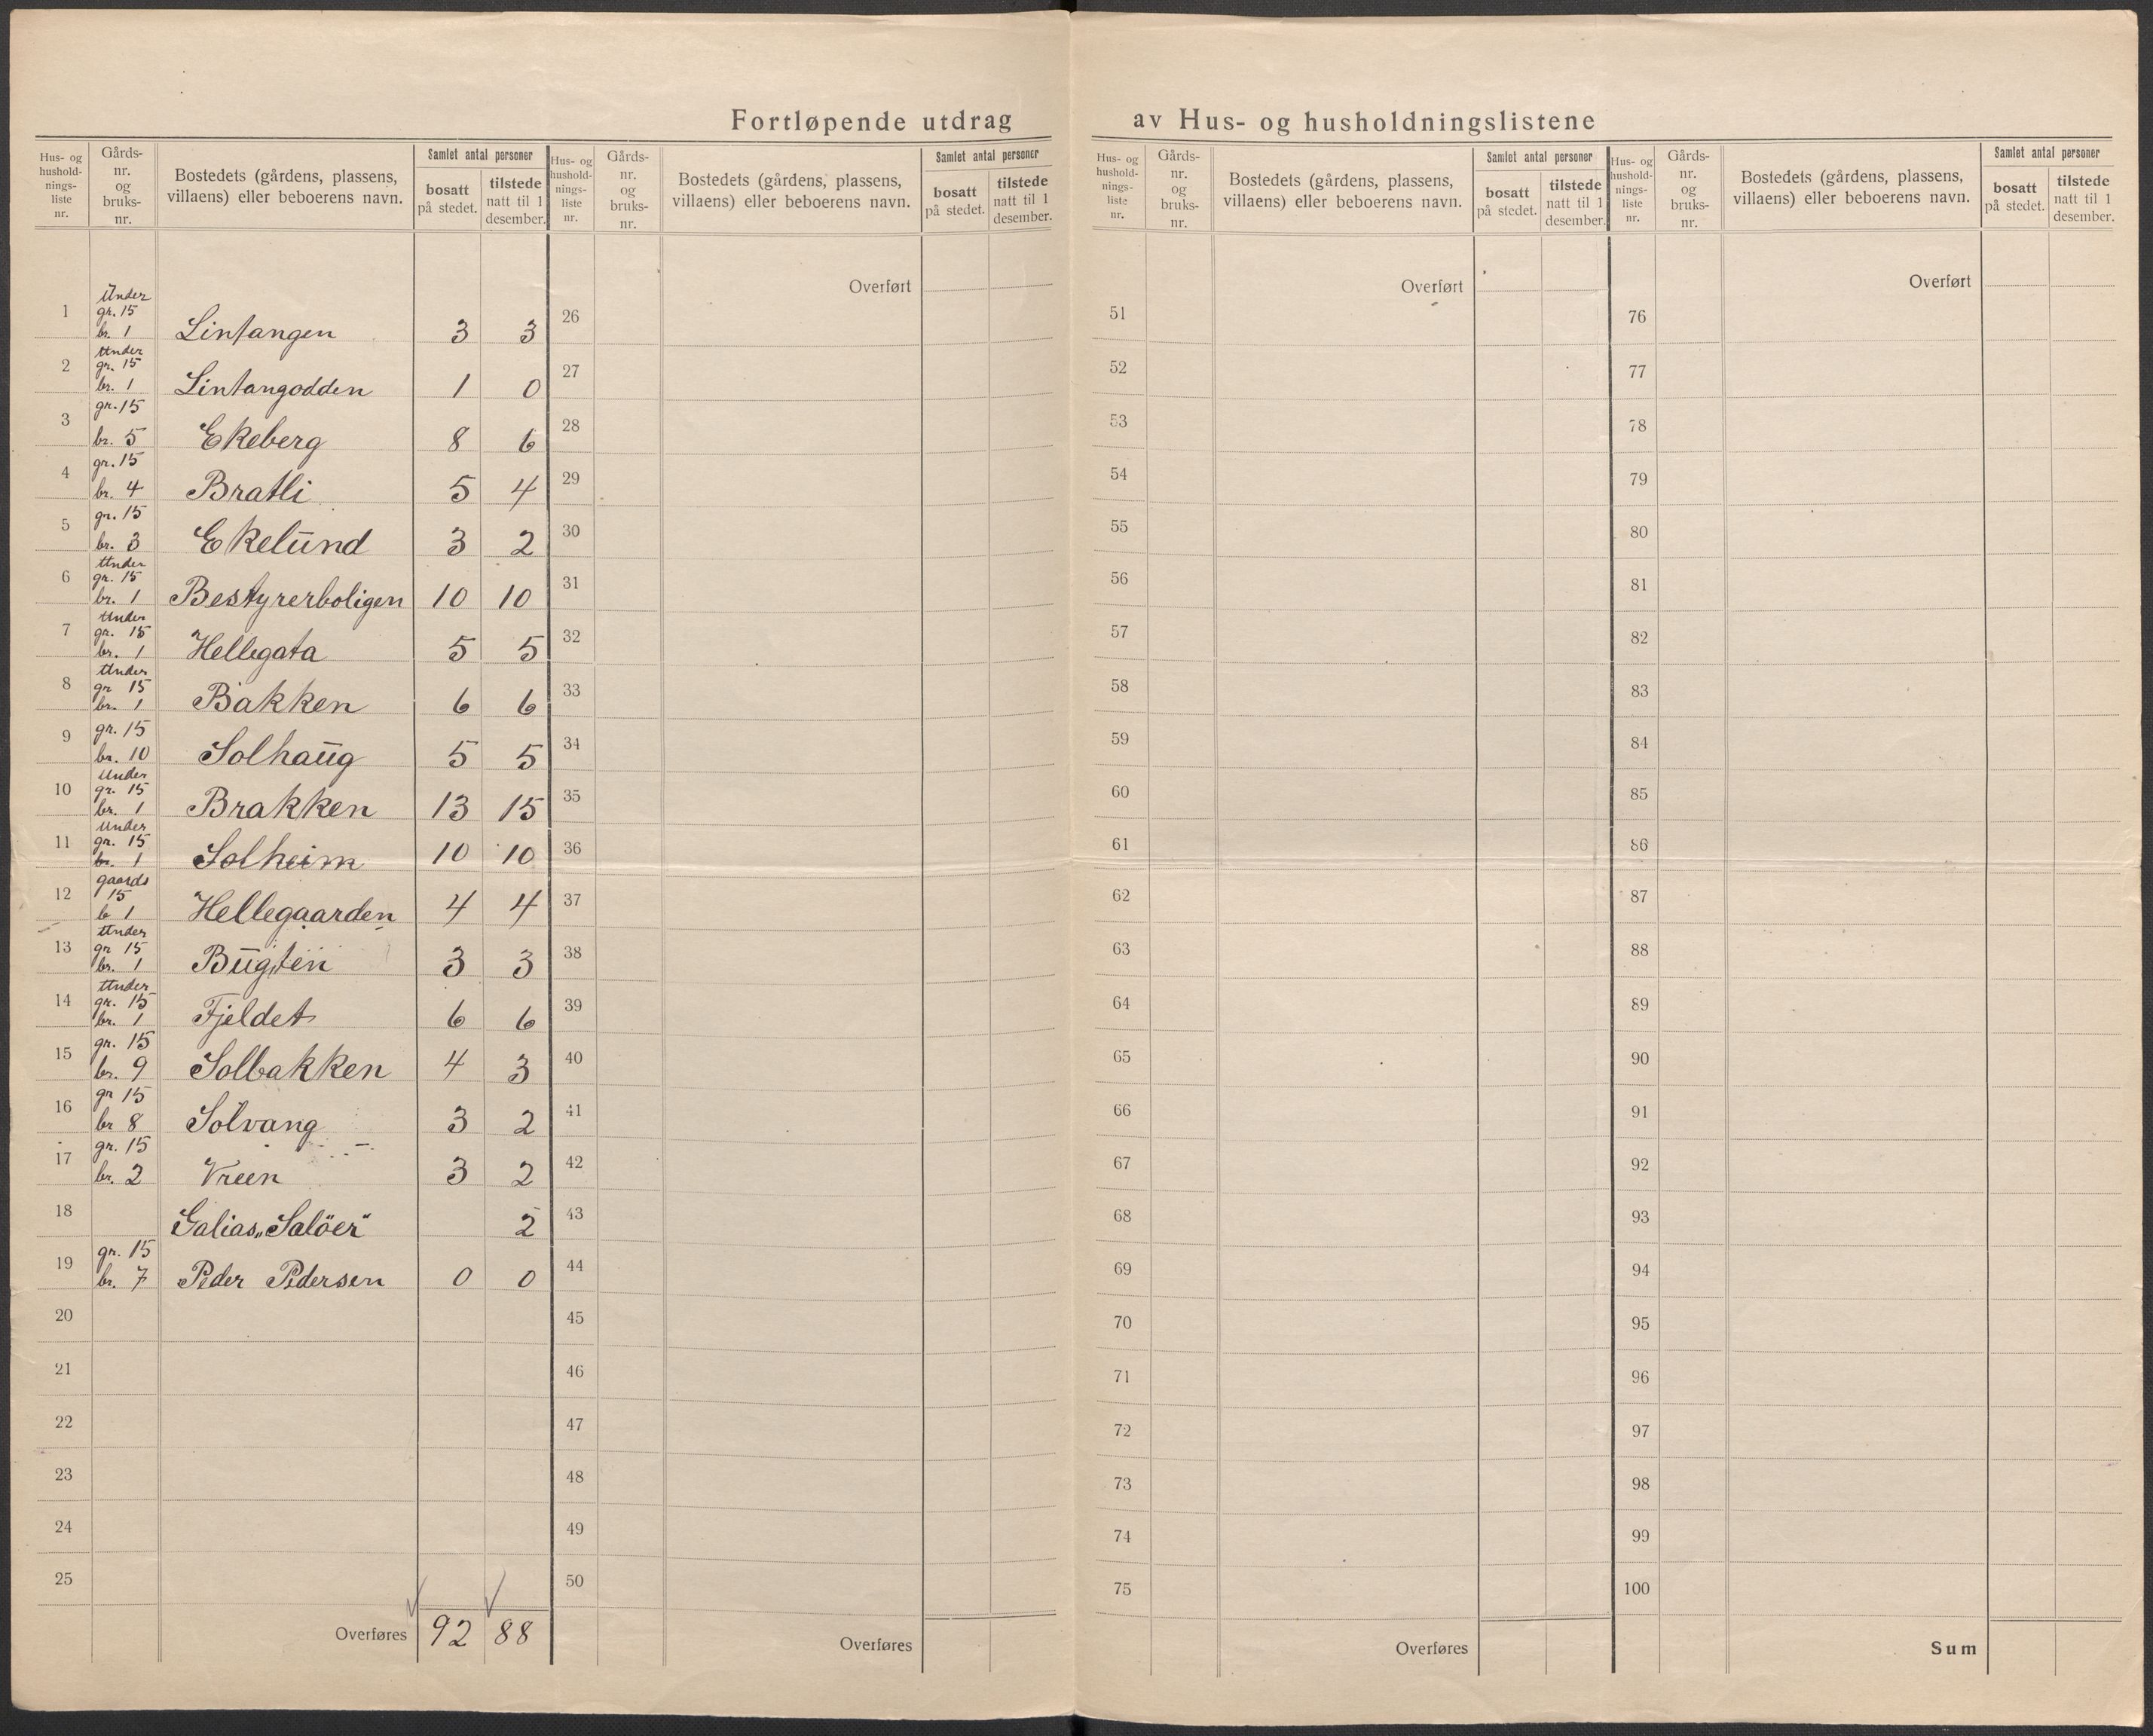 Fortløpende utdrag av Hus- og husholdningslistene
Hus- og hushold- nings- liste nr. | Gårds- nr. og bruks- nr. | Bostedets (gårdens, plassens, villaens) eller beboerens navn. | Samlet antal personer | bosatt på stedet. | tilstede natt til 1 desember.
1 Under gr. 15 br. 1 Lintangen 3 3
2 Under gr. 15 br. 1 Lintangodden 1 0
3 gr. 15 br. 5 Ekeberg 8 6
4 gr. 15 br. 4 Bratli 5 4
5 gr. 15 br. 3 Ekelund 3 2
6 Under gr. 15 br. 1 Bestyrerboligen 10 10
7 Under gr. 15 br. 1 Hellegata 5 5
8 Under gr 15 br. 1 Bakken 6 6
9 gr. 15 br. 10 Solhaug 5 5
10 Under gr. 15 br. 1 Brakken 13 15
11 Under gr. 15 br. 1 Solheim 10 10
12 gaards 15 b 1 Hellegaarden 4 4
13 Under gr 15 br. 1 Bugten 3 3
14 Under gr. 15 br. 1 Fjeldet 6 6
15 gr. 15 br. 9 Solbakken 4 3
16 gr 15 br 8 Solvang 3 2
17 gr. 15 br. 2 Vreen 3 2
18 Galias „Saløer" 2
19 gr. 15 br. 7 Peder Pedersen 0 0
20
21
22
23
24
25
Overføres 92 88
Hus- og hushold- nings- liste nr. | Gårds- nr. og bruks- nr. | Bostedets (gårdens, plassens, villaens) eller beboerens navn. | Samlet antal personer | bosatt på stedet. | tilstede natt til 1 desember.
Overført
26
27
28
29
30
31
32
33
34
35
36
37
38
39
40
41
42
43
44
45
46
47
48
49
50
Overføres
Hus- og hushold- nings- liste nr. | Gårds- nr. og bruks- nr. | Bostedets (gårdens, plassens, villaens) eller beboerens navn. | Samlet antal personer | bosatt på stedet. | tilstede natt til 1 desember.
Overført
51
52
53
54
55
56
57
58
59
60
61
62
63
64
65
66
67
68
69
70
71
72
73
74
75
Overføres
Hus- og hushold- nings- liste nr. | Gårds- nr. og bruks- nr. | Bostedets (gårdens, plassens, villaens) eller beboerens navn. | Samlet antal personer | bosatt på stedet. | tilstede natt til 1 desember.
Overført
76
77
78
79
80
81
82
83
84
85
86
87
88
89
90
91
92
93
94
95
96
97
98
99
100
Sum